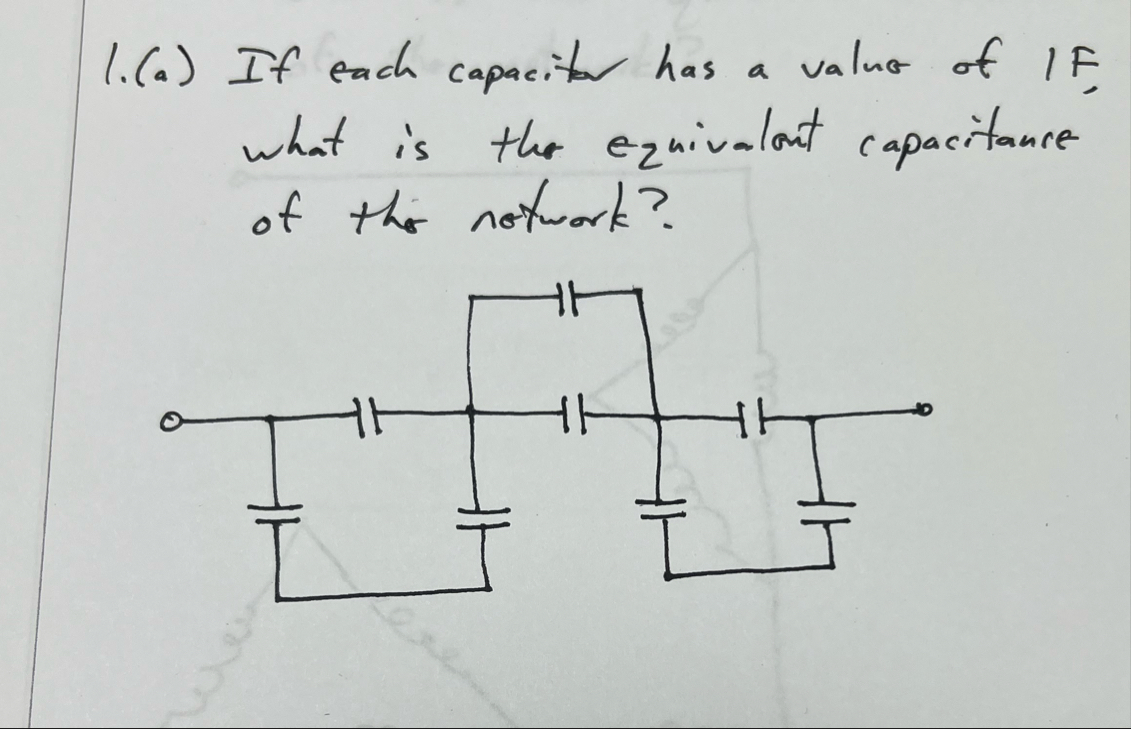 1.(a) If each capacitor has a value of 1 F,
what is the equivalent capacitance
of the network?